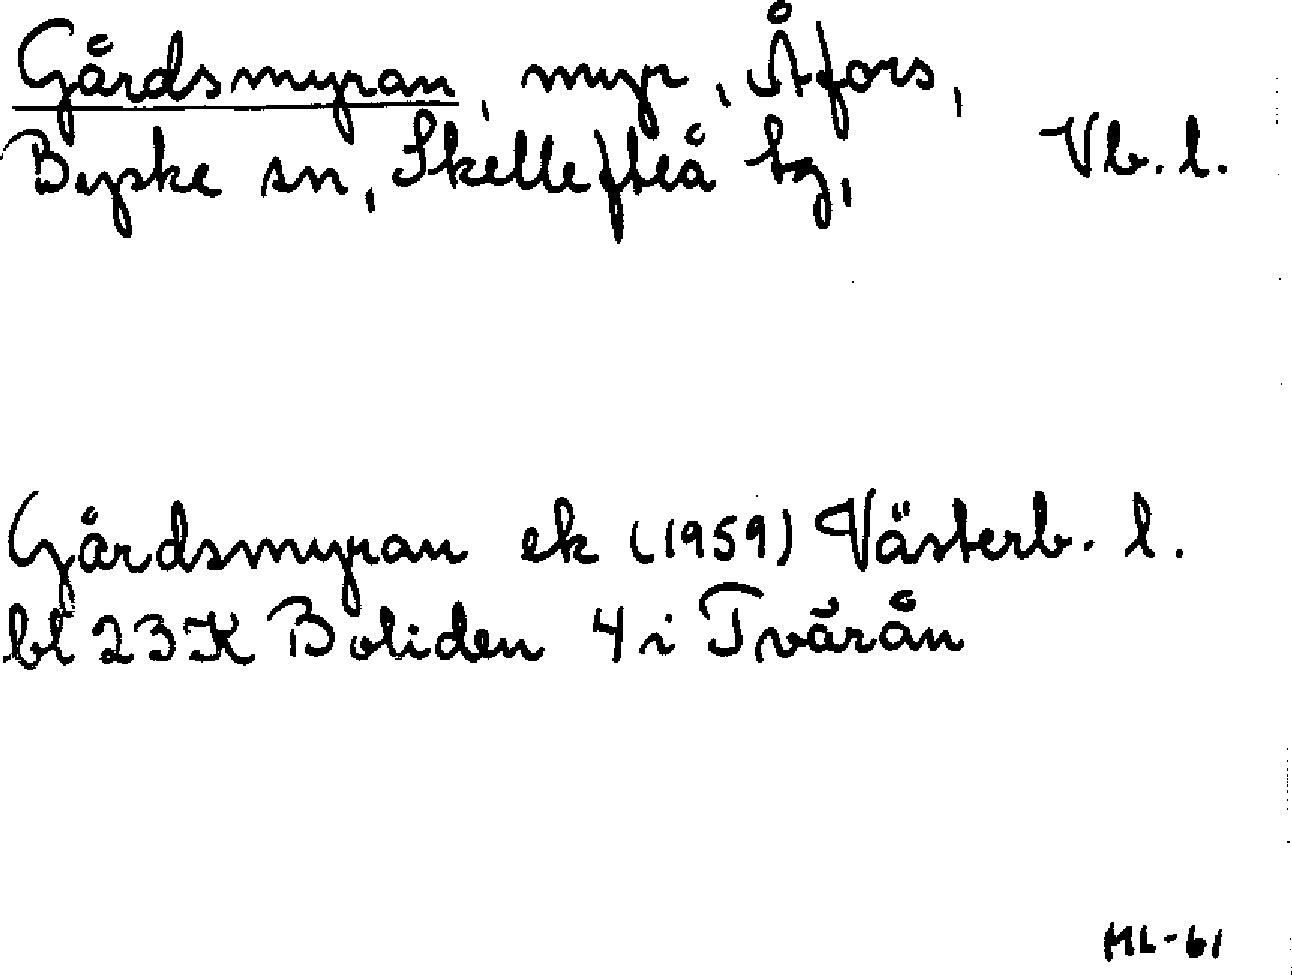 Gårdsmyran, myr, Åfors,
Byske sn, Skellefteå tg, Vb. l.
Gårdsmyran ek (1959) Västerb. l.
bl 23K Boliden 4 i Tvärån
ML-61